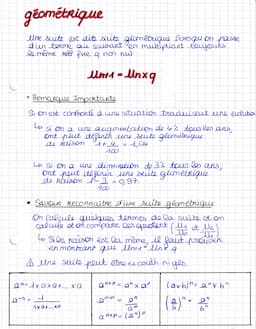 géométrique
Une suite est dite suite géométrique lorsqu'on passe
d'un terme au suivant en multipliant toujours
le même réel fixe q non nul
Un+1 = Un x q
• Remarque Importante
Si on est confronté à une situation traduisant une évolution
↳ si on a une augmentation de 4% tous les ans,
on peut définir une suite géométrique
de raison 1+ 4/100 = 1,04
↳ si on a une diminution de 3% tous les ans,
on peut définir une suite géométrique
de raison 1- 3/100 = 0,97.
• Savoir reconnaître d'une suite géométrique
On calcule quelques termes de la suite et on
calcule et on compare les quotients (U1/U0 et U2/U1)
↳ Si la raison est la même, il faut prouver
en montrant que Un+1 = Un x q
⚠ Une suite peut être ni arith ni géo.
aⁿ = 1 x a x a ... x a
a⁻ⁿ = 1/(1 x a x a ... x a)
aⁿ⁺ᵖ = aⁿ x aᵖ
aⁿ⁻ᵖ = aⁿ/aᵖ
(a x b)ⁿ = aⁿ x bⁿ
(a/b)ⁿ = aⁿ/bⁿ